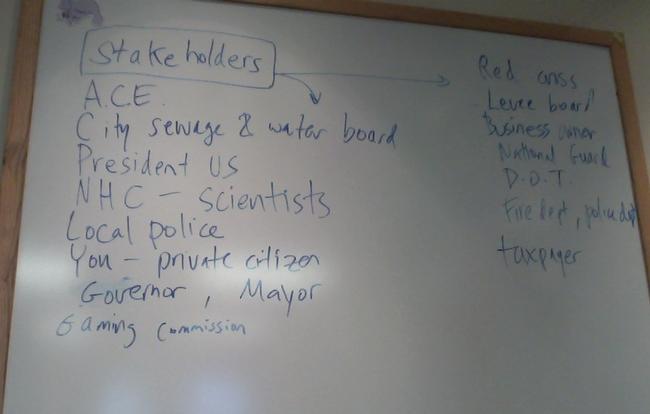 Stakeholders
A.C.E.
City sewage & water board
President US
NHC - scientists
Local police
You - private citizen
Governor, Mayor
Gaming Commission
Red cross
Levee board
Business owner
National Guard
D.O.T.
Fire dept, police dept
taxpayer